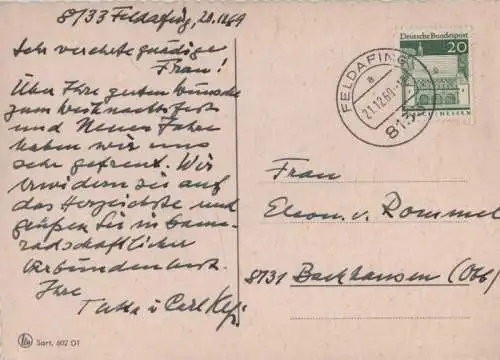 8133 Feldafing, 20.12.69
Sehr verehrte gnädige
Frau!
Über Ihre guten Wünsche
zum Weihnachtsfest
und Neues Jahr
haben wir uns
sehr gefreut. Wir
erwidern sie auf
das Herzlichste und
grüßen Sie in kame-
radschaftlicher
Verbundenheit.
Ihre
Carl
Sort. 602 D1
Deutsche Bundespost
20
FELDAFING
a
21.12.69
8133
HESSEN
Frau
Eleon. v. Rommel
8131 Bachhausen (Obb)